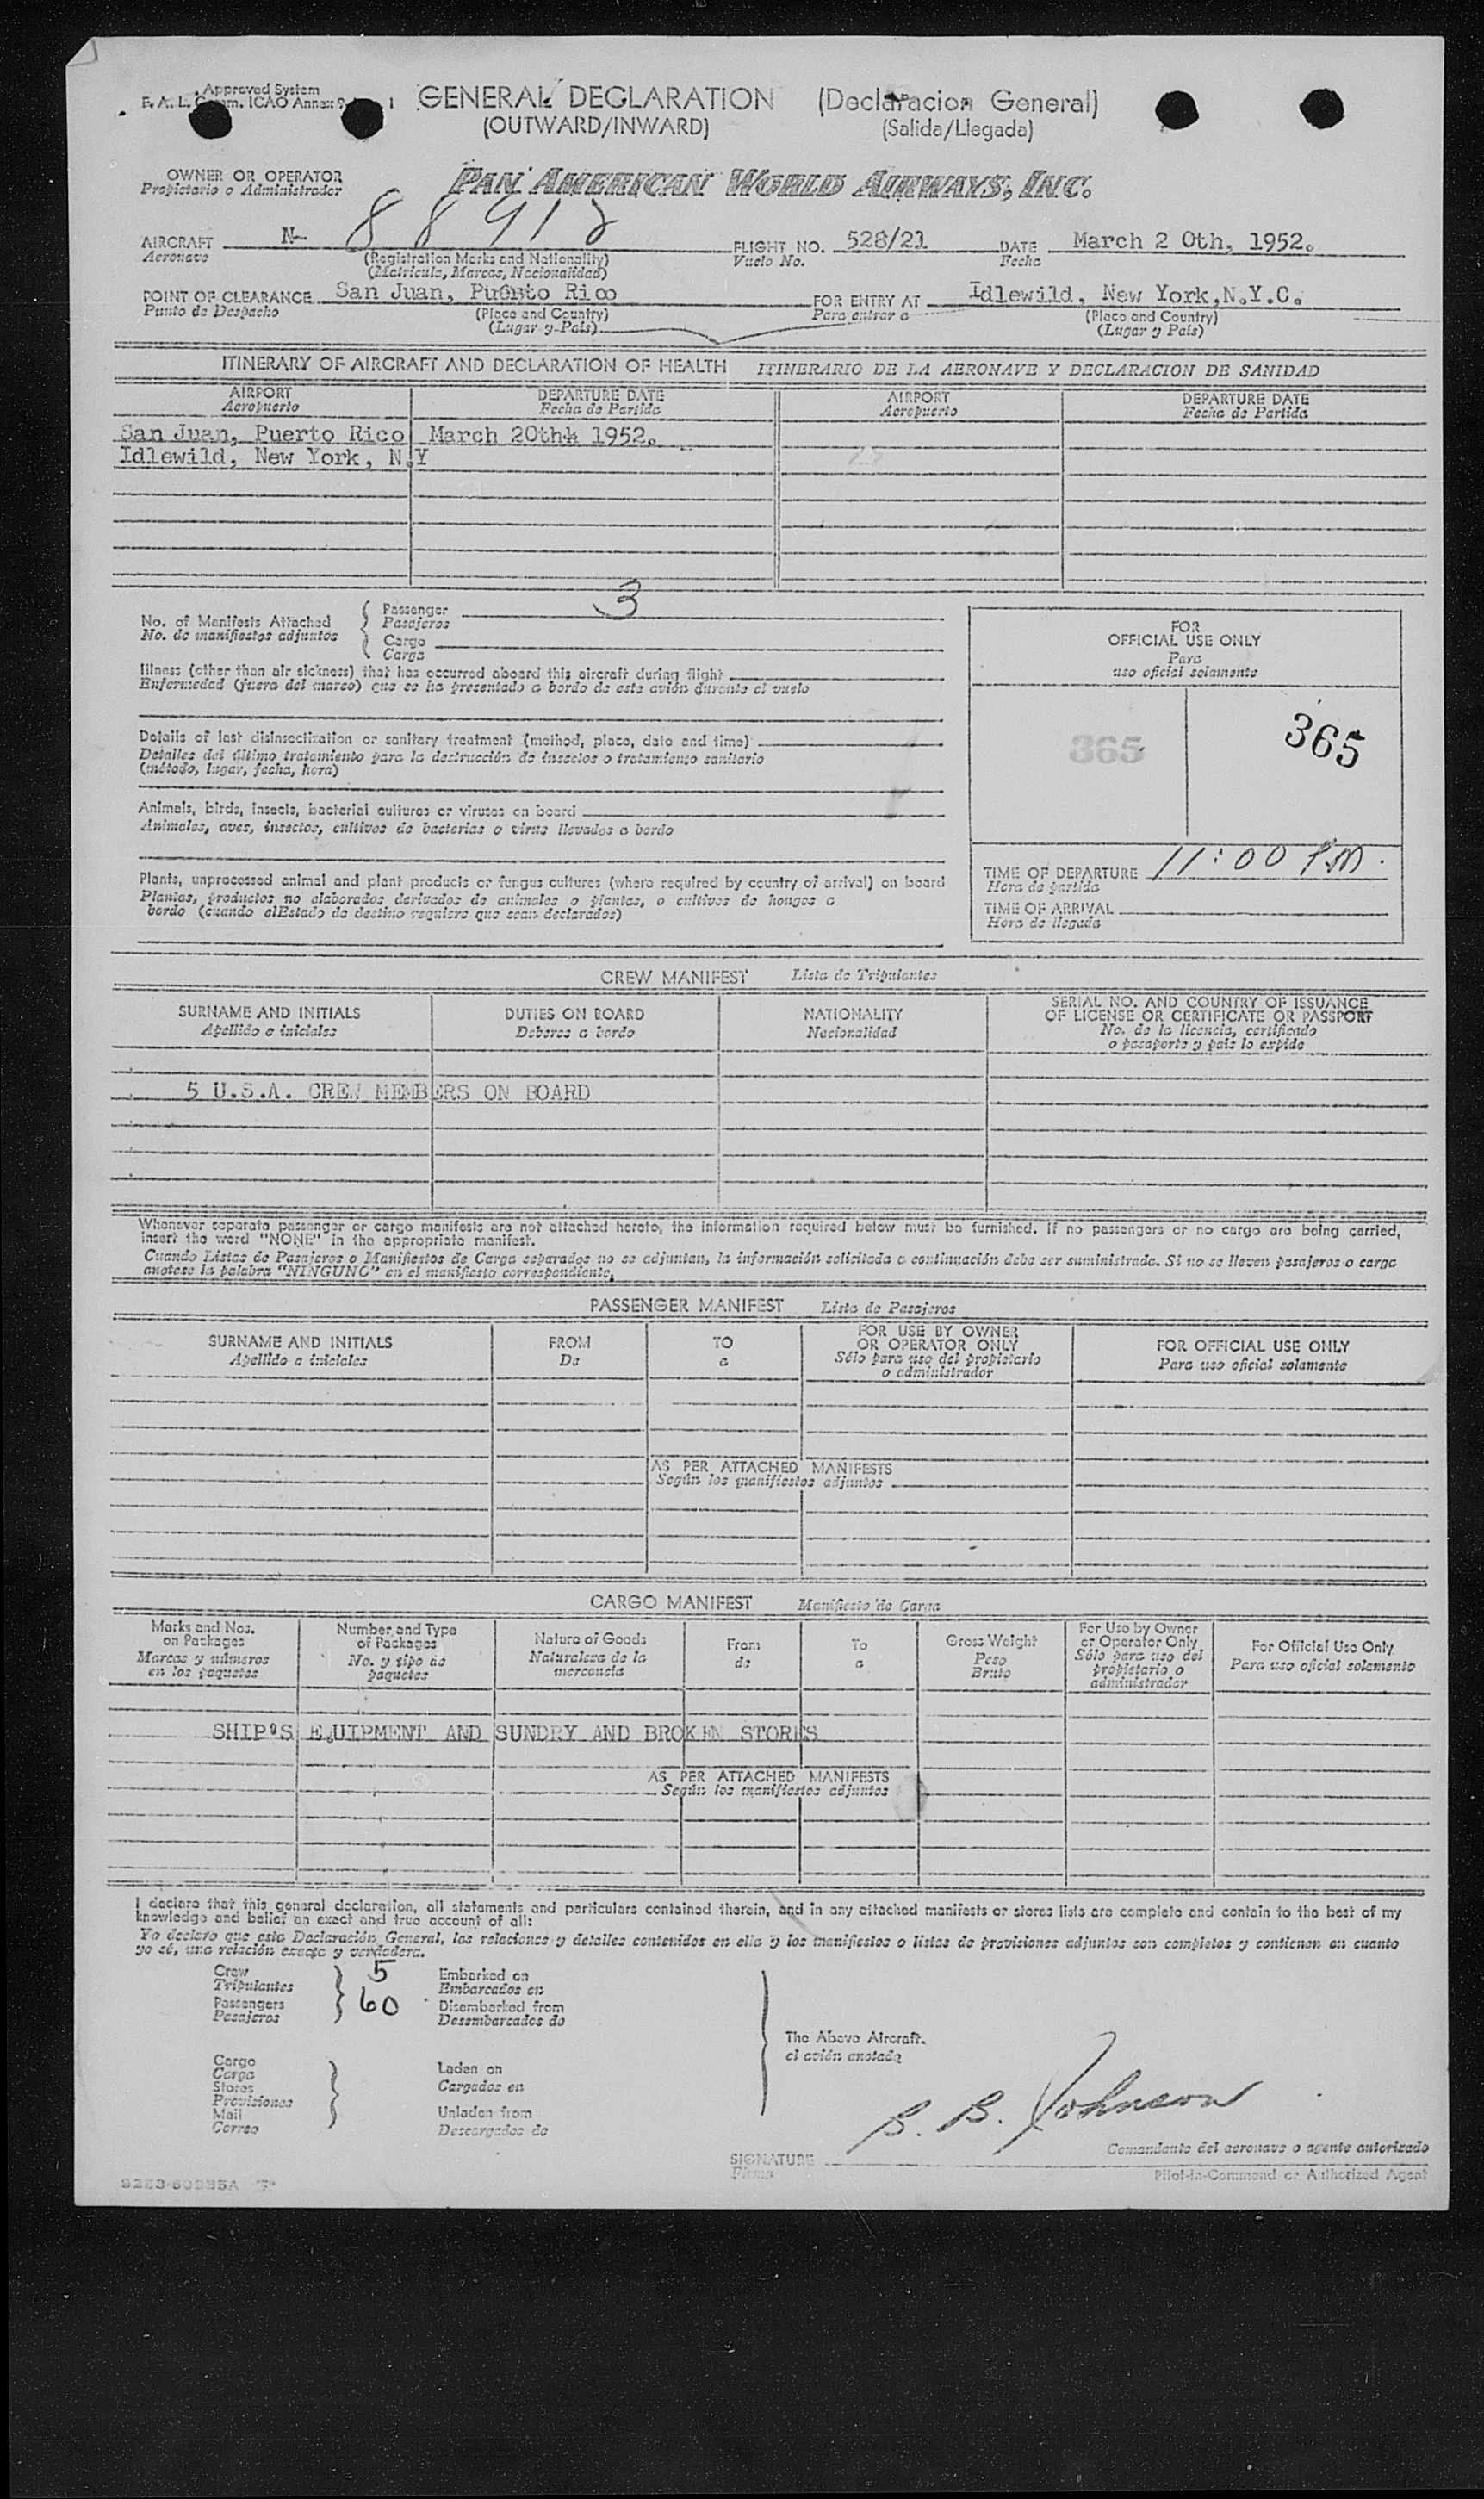 Approved System
F. A. L. Comm. ICAO Annex 9 1
GENERAL DECLARATION (Declaracion General)
(OUTWARD/INWARD) (Salida/Llegada)
OWNER OR OPERATOR PAN AMERICAN WORLD AIRWAYS, INC.
Propietario o Administrador
AIRCRAFT N- 88918 FLIGHT NO. 528/21 DATE March 2 0th, 1952.
Aeronave (Registration Marks and Nationality) Vuelo No. Fecha
(Matricula, Marcas, Nacionalidad)
POINT OF CLEARANCE San Juan, Puerto Rico FOR ENTRY AT Idlewild, New York,N.Y.C.
Punto de Despacho (Place and Country) Para entrar a (Place and Country)
(Lugar y País) (Lugar y País)
ITINERARY OF AIRCRAFT AND DECLARATION OF HEALTH ITINERARIO DE LA AERONAVE Y DECLARACION DE SANIDAD
AIRPORT DEPARTURE DATE AIRPORT DEPARTURE DATE
Aeropuerto Fecha de Partida Aeropuerto Fecha de Partida
San Juan, Puerto Rico March 20th 1952.
Idlewild, New York, N.Y
No. of Manifests Attached Passenger 3
No. de manifiestos adjuntos Pasajeros
Cargo
Carga
Illness (other than air sickness) that has occurred aboard this aircraft during flight
Enfermedad (fuera del mareo) que se ha presentado a bordo de este avión durante el vuelo
Details of last disinsectization or sanitary treatment (method, place, date and time)
Detalles del último tratamiento para la destrucción de insectos o tratamiento sanitario
(método, lugar, fecha, hora)
Animals, birds, insects, bacterial cultures or viruses on board
Animales, aves, insectos, cultivos de bacterias o virus llevados a bordo
Plants, unprocessed animal and plant products or fungus cultures (where required by country of arrival) on board
Plantas, productos no elaborados derivados de animales o plantas, o cultivos de hongos a
bordo (cuando elEstado de destino requiere que sean declarados)
FOR
OFFICIAL USE ONLY
Para
uso oficial solamente
365 365
TIME OF DEPARTURE 11:00 PM.
Hora de partida
TIME OF ARRIVAL
Hora de llegada
CREW MANIFEST Lista de Tripulantes
SURNAME AND INITIALS DUTIES ON BOARD NATIONALITY SERIAL NO. AND COUNTRY OF ISSUANCE
Apellido e iniciales Deberes a bordo Nacionalidad OF LICENSE OR CERTIFICATE OR PASSPORT
No. de la licencia, certificado
o pasaporte y país lo expide
5 U.S.A. CREW MEMBERS ON BOARD
Whenever separate passenger or cargo manifests are not attached hereto, the information required below must be furnished. If no passengers or no cargo are being carried,
insert the word "NONE" in the appropriate manifest.
Cuando Listas de Pasajeros o Manifiestos de Carga separados no se adjuntan, la información solicitada a continuación debe ser suministrada. Si no se lleven pasajeros o carga
anotese la palabra "NINGUNO" en el manifiesto correspondiente.
PASSENGER MANIFEST Lista de Pasajeros
SURNAME AND INITIALS FROM TO FOR USE BY OWNER FOR OFFICIAL USE ONLY
Apellido e iniciales De a OR OPERATOR ONLY Para uso oficial solamente
Sólo para uso del propietario
o administrador
AS PER ATTACHED MANIFESTS
Según los manifiestos adjuntos
CARGO MANIFEST Manifiesto de Carga
Marks and Nos. Number and Type Nature of Goods From To Gross Weight For Use by Owner For Official Use Only
on Packages of Packages Naturaleza de la de a Peso or Operator Only Para uso oficial solamente
Marcas y números No. y tipo de mercancia Bruto Sólo para uso del
en los paquetes paquetes propietario o
administrador
SHIP'S EQUIPMENT AND SUNDRY AND BROKEN STORES
AS PER ATTACHED MANIFESTS
Según los manifiestos adjuntos
I declare that this general declaration, all statements and particulars contained therein, and in any attached manifests or stores lists are complete and contain to the best of my
knowledge and belief an exact and true account of all:
Yo declaro que esta Declaración General, las relaciones y detalles contenidos en ella y los manifiestos o listas de provisiones adjuntos son completos y contienen en cuanto
yo sé, una relación exacta y verdadera.
Crew 5 Embarked on
Tripulantes Embarcados en
Passengers 60 Disembarked from
Pasajeros Desembarcados de
The Above Aircraft.
el avión anotada
Cargo Laden on
Carga Cargados en
Stores
Provisiones
Mail Unladen from
Correo Descargados de
SIGNATURE B. B. Johnson
Firma
Comandante del aeronave o agente autorizado
Pilot-in-Command or Authorized Agent